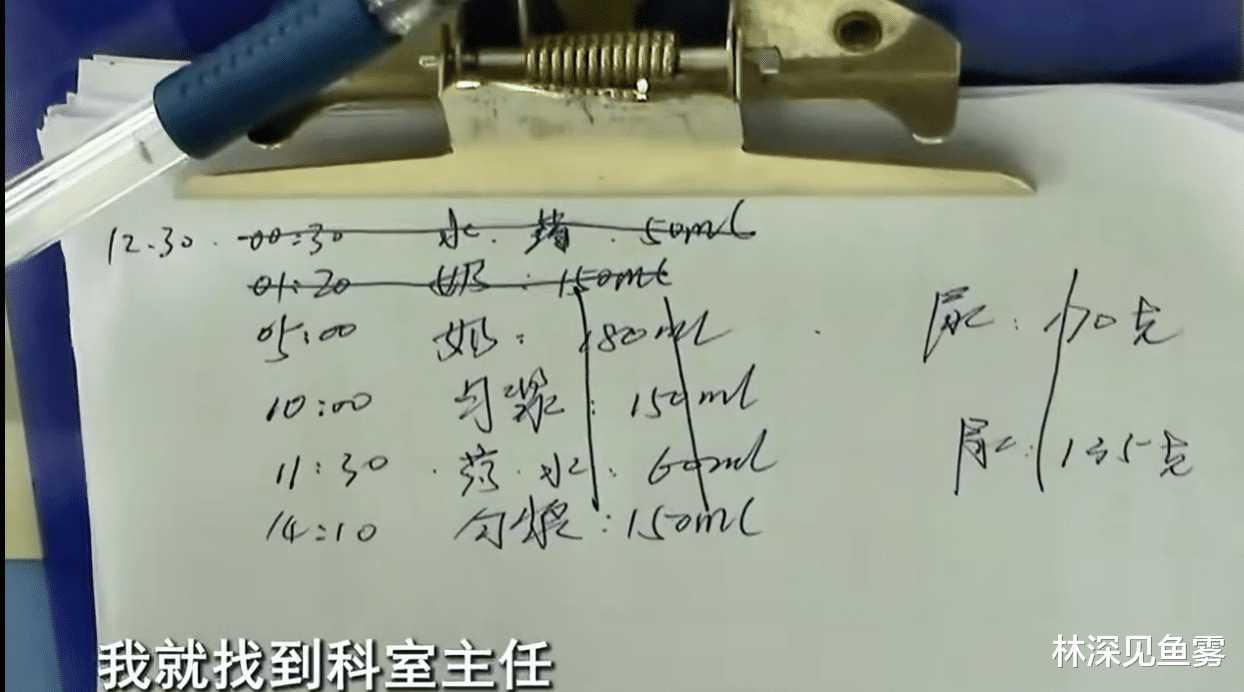 12.30. 00:30 水. 50ml
01:20 奶: 150ml
05:00 奶: 180ml 尿: 170克
10:00 匀浆: 150ml
11:30. 药.水: 60ml 尿: 135克
14:10 匀浆: 150ml
我就找到科室主任
林深见鱼雾